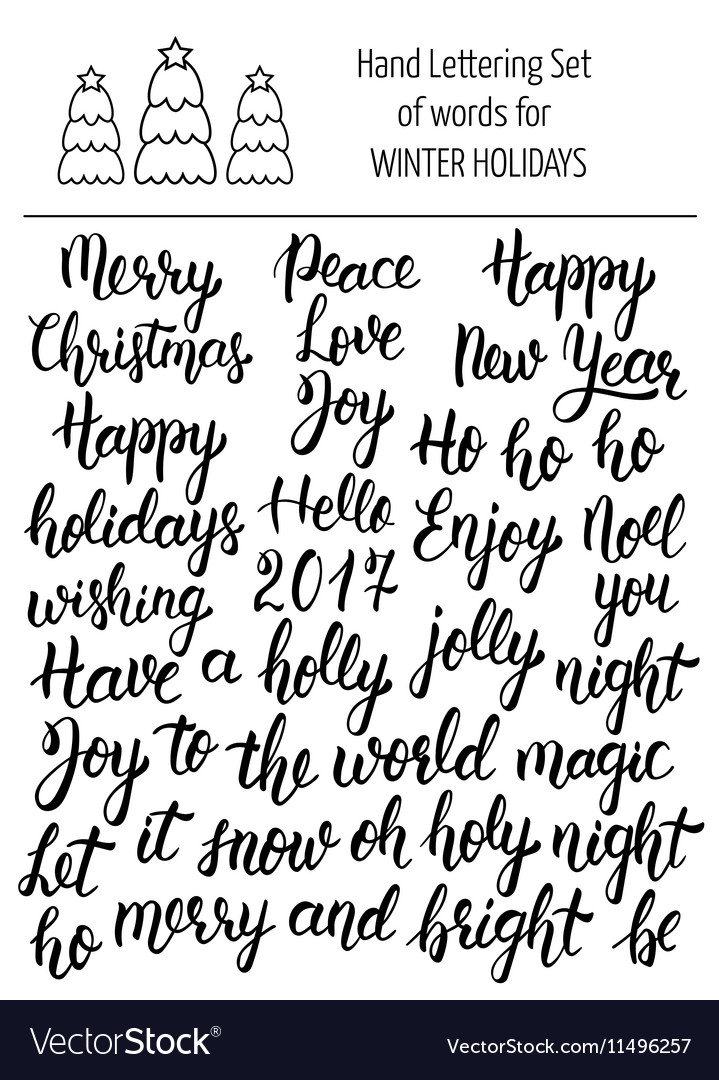 Hand Lettering Set
of words for
WINTER HOLIDAYS
Merry Peace Happy
Christmas Love New Year
Happy Joy Ho ho ho
holidays Hello Enjoy Noel
wishing 2017 you
Have a holly jolly night
Joy to the world magic
Let it snow oh holy night
ho merry and bright be
VectorStock®
VectorStock.com/11496257